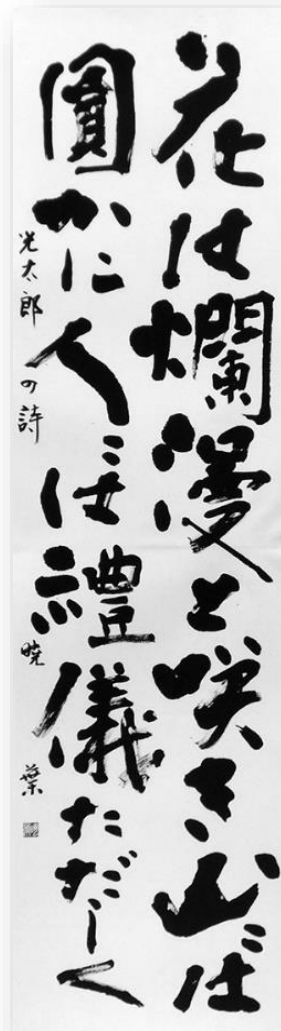 花は爛漫と咲き山ミは
圓かに人ミは禮儀ただしく
光太郎の詩 暁葉